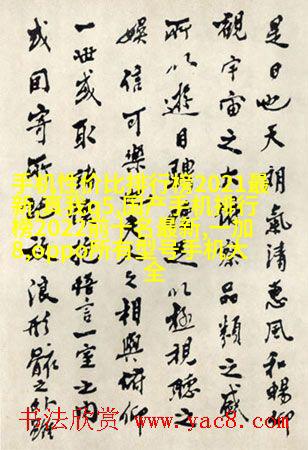 是日也天朗氣清惠風和暢仰
觀宇宙之大俯察品類之盛
所以遊目騁懷足以極視聽之
娛信可樂也夫人之相與俯仰
一世或取諸懷抱悟言一室之內
或因寄所託放浪形骸之外雖
手机性价比排行榜2021最
新,真我q5,国产手机排行
榜2022前十名最新,一加
8,oppo所有型号手机大
全
书法欣赏 www.yac8.com